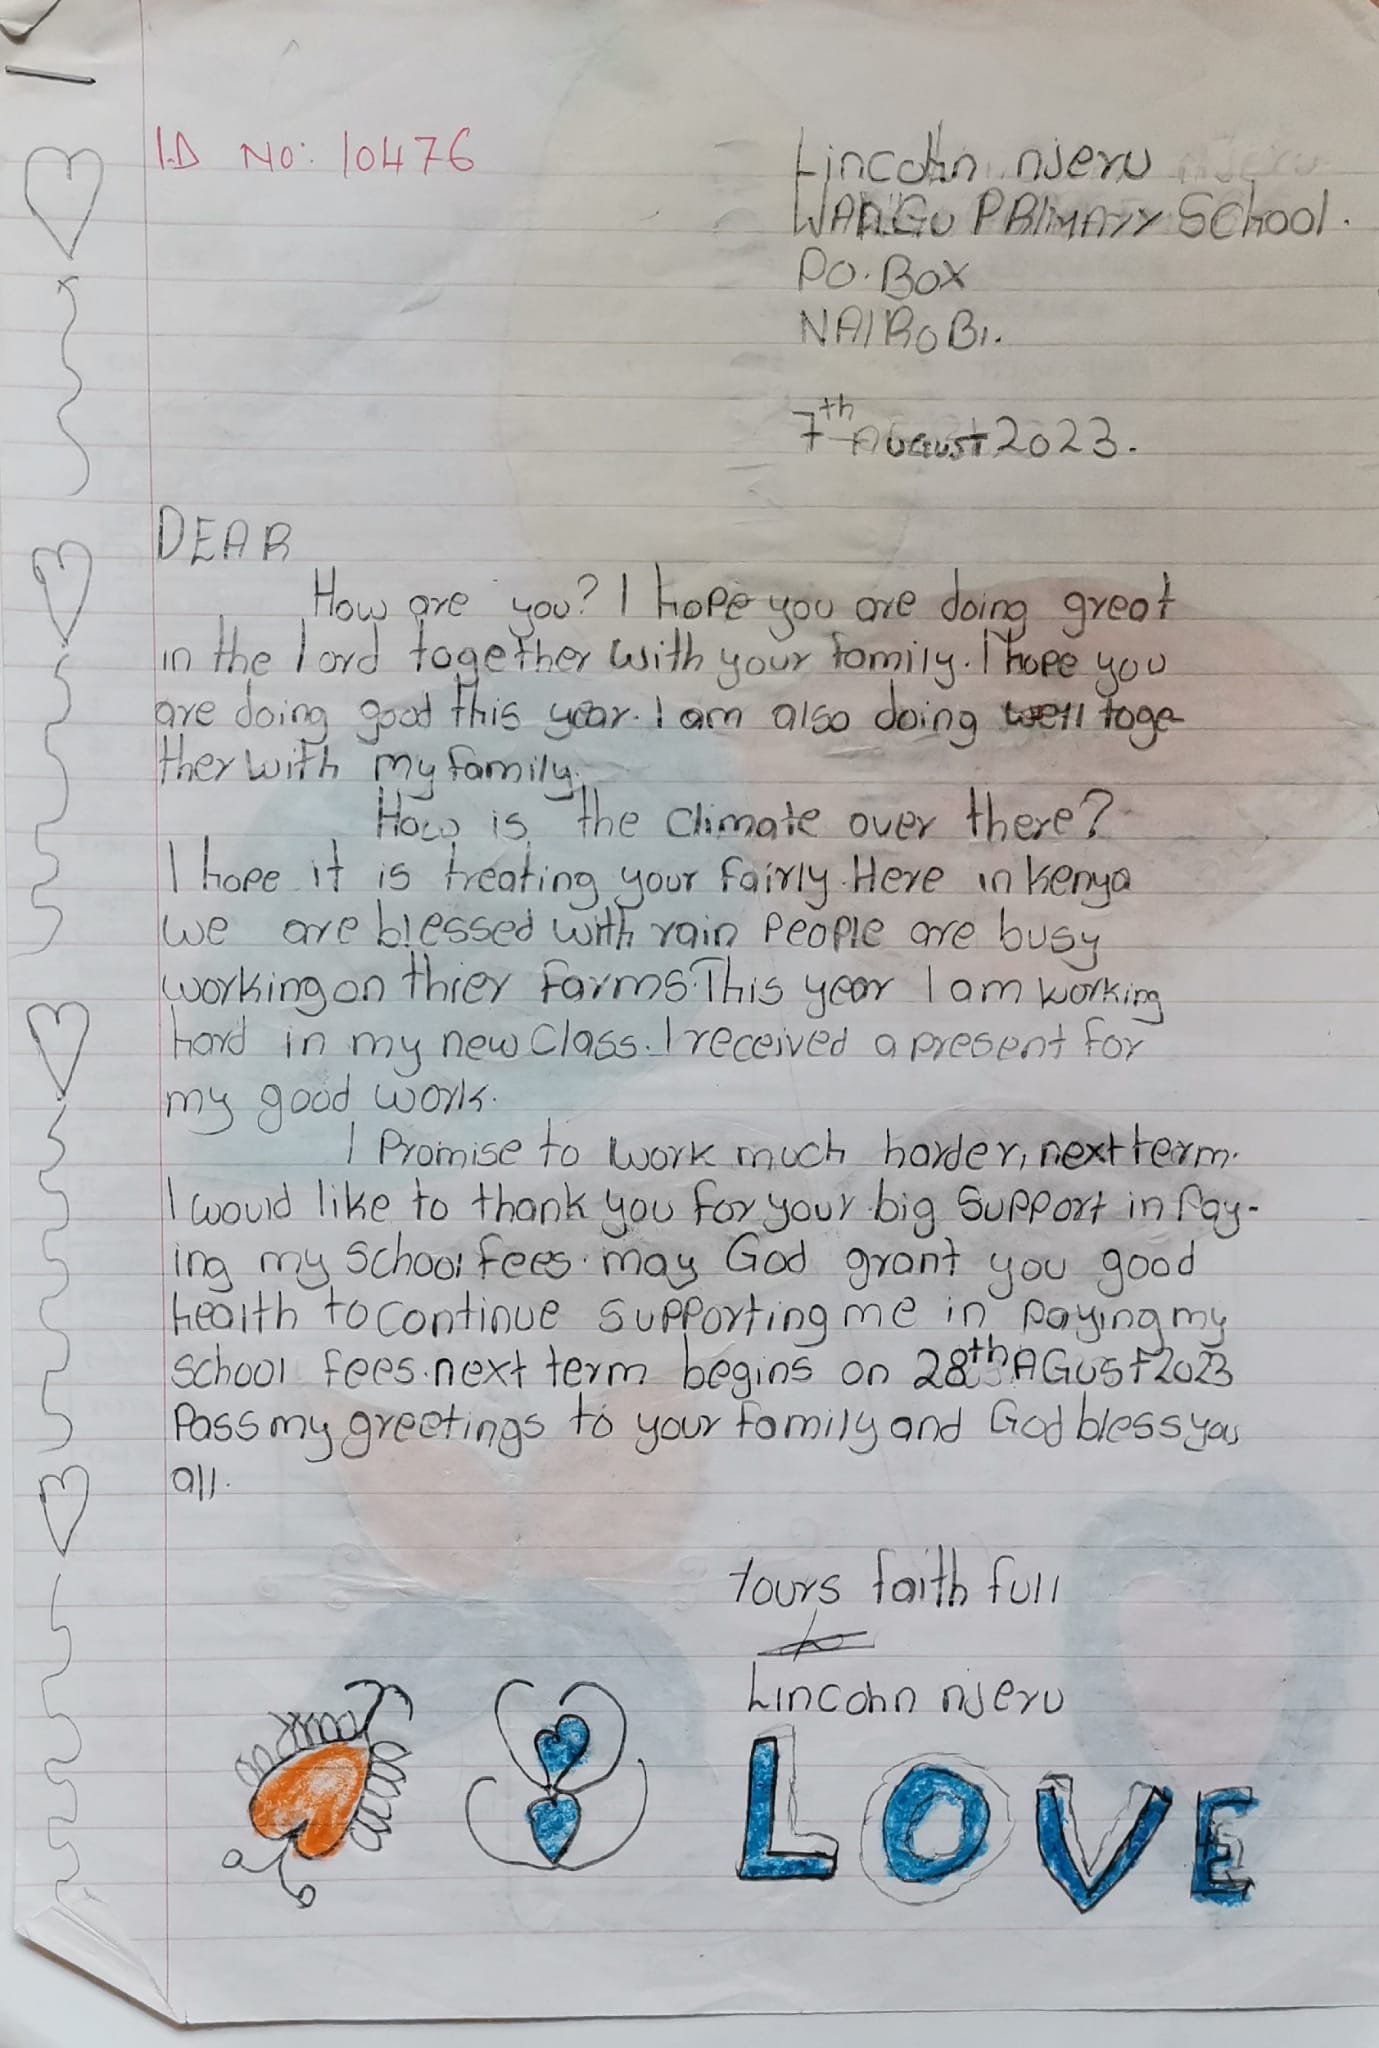 I.D NO: 10476
Lincohn njeru
WANGU PRIMARY School.
P.O. Box
NAIROBI.
7th August 2023.
DEAR
How are you? I hope you are doing great
in the lord together with your family. I hope you
are doing good this year. I am also doing well toge
ther with my family.
How is the climate over there?
I hope it is treating your fairly. Here in kenya
we are blessed with rain People are busy
working on thier farms. This year I am working
hard in my new class. I received a present for
my good work.
I Promise to work much harder, next term.
I would like to thank you for your big support in Pay-
ing my school fees. may God grant you good
health to continue supporting me in paying my
school fees. next term begins on 28th AGUST 2023
Pass my greetings to your family and God bless you
all.
Yours faith full
Lincohn njeru
LOVE